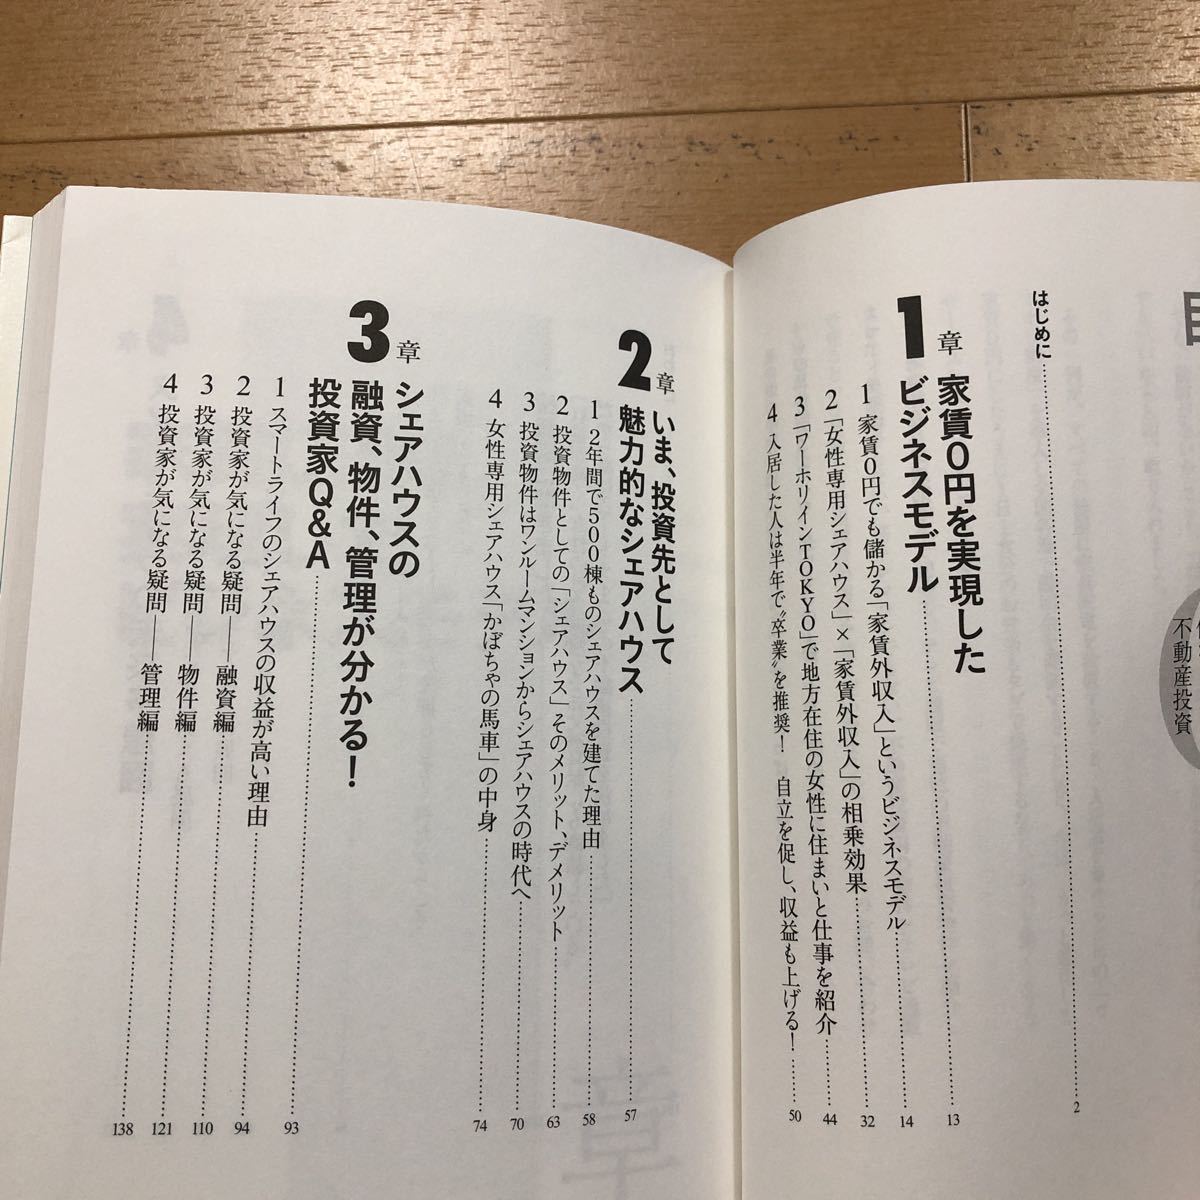 はじめに……2
1章 家賃0円を実現した
ビジネスモデル……13
1 家賃0円でも儲かる「家賃外収入」というビジネスモデル……14
2 「女性専用シェアハウス」×「家賃外収入」の相乗効果……32
3 「ワーホリインTOKYO」で地方在住の女性に住まいと仕事を紹介……44
4 入居した人は半年で〝卒業〟を推奨! 自立を促し、収益も上げる!……50
2章 いま、投資先として
魅力的なシェアハウス……57
1 2年間で500棟ものシェアハウスを建てた理由……58
2 投資物件としての「シェアハウス」そのメリット、デメリット……63
3 投資物件はワンルームマンションからシェアハウスの時代へ……70
4 女性専用シェアハウス「かぼちゃの馬車」の中身……74
3章 シェアハウスの
融資、物件、管理が分かる!
投資家Q&A……93
1 スマートライフのシェアハウスの収益が高い理由……94
2 投資家が気になる疑問——融資編……110
3 投資家が気になる疑問——物件編……121
4 投資家が気になる疑問——管理編……138
不動産投資